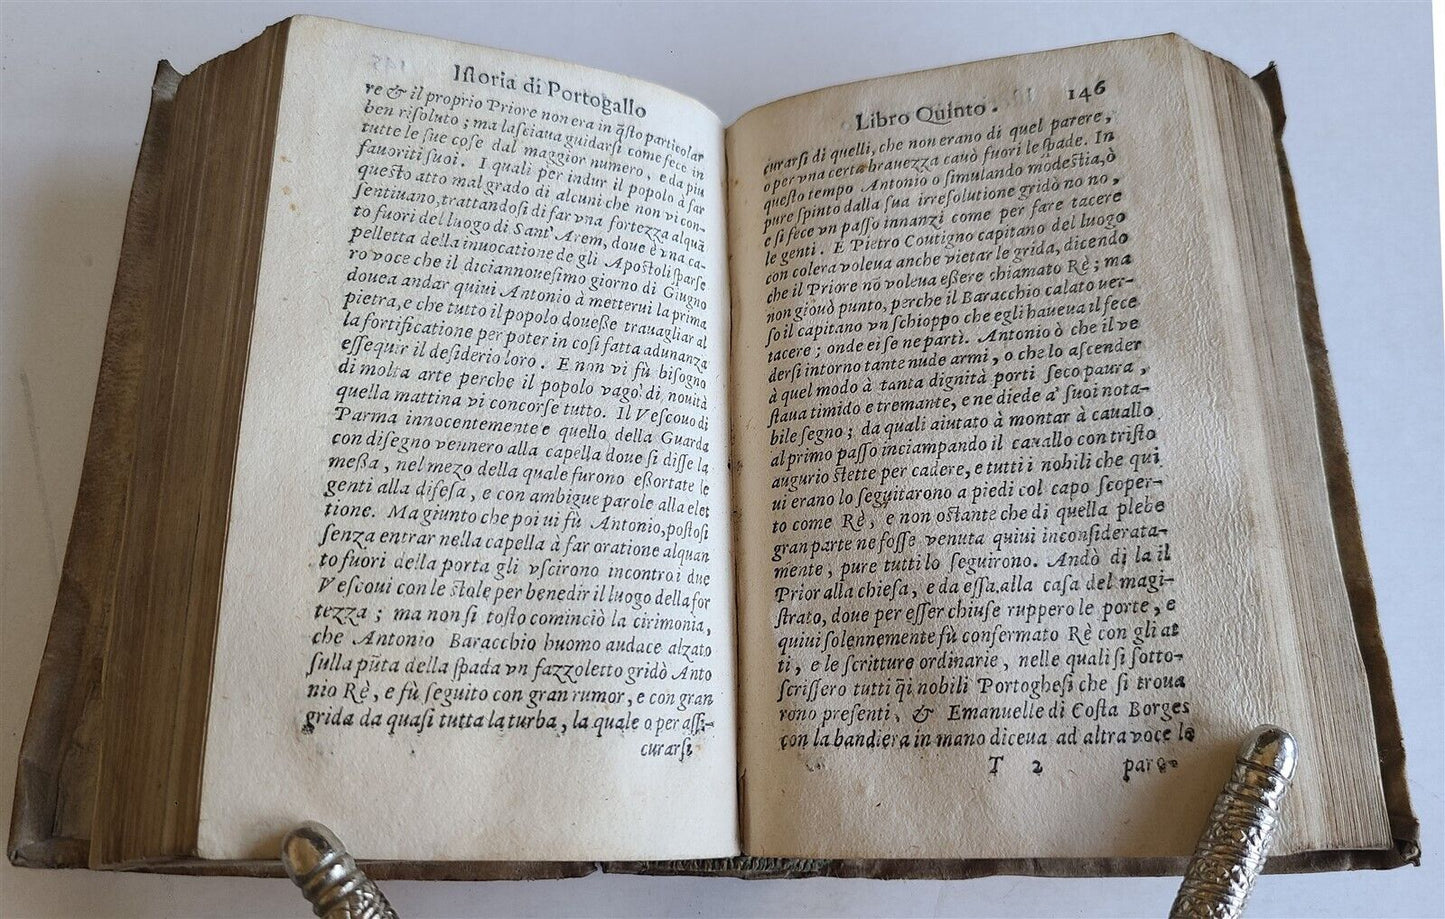 Iſtoria di Portogallo
re & il proprio Priore non era in q̃ſto particolar
ben riſoluto ; ma laſciaua guidarſi come fece in
tutte le ſue coſe dal maggior numero, e da piu
fauoriti ſuoi. I quali per indur il popolo à far
queſto atto mal grado di alcuni che non vi con-
ſentiuano, trattandoſi di far vna fortezza alquã
to fuori del luogo di Sant' Arem, doue è vna ca-
pelletta della inuocatione de gli Apoſtoli ſparſe
ro voce che il diciannoueſimo giorno di Giugno
douea andar quiui Antonio à metterui la prima
pietra, e che tutto il popolo doueſſe trauagliar al
la fortificatione per poter in coſi fatta adunanza
eſſequir il deſiderio loro. E non vi fù biſogno
di molta arte perche il popolo vago di nouità
quella mattina vi concorſe tutto. Il Veſcouo di
Parma innocentemente e quello della Guarda
con diſegno vennero alla capella doue ſi diſſe la
meſſa, nel mezo della quale furono eſſortate le
genti alla difeſa, e con ambigue parole alla elet
tione. Ma giunto che poi ui fù Antonio, poſtoſi
ſenza entrar nella capella à far oratione alquan
to fuori della porta gli vſcirono incontro i due
Veſcoui con le ſtole per benedir il luogo della for
tezza ; ma non ſi toſto cominciò la cirimonia,
che Antonio Baracchio huomo audace alzato
ſulla pũta della ſpada vn fazzoletto gridò Anto
nio Rè, e fù ſeguito con gran rumor, e con gran
grida da quaſi tutta la turba, la quale o per aſſi-
curarſi
Libro Quinto. 146
curarſi di quelli, che non erano di quel parere,
o per vna certa brauezza cauò fuori le ſpade. In
queſto tempo Antonio o ſimulando modeſtia, ò
pure ſpinto dalla ſua irreſolutione gridò no no,
e ſi fece vn paſſo innanzi come per fare tacere
le genti. E Pietro Coutigno capitano del luogo
con colera voleua anche vietar le grida, dicendo
che il Priore nõ voleua eſſere chiamato Rè ; ma
non giouò punto, perche il Baracchio calato ver-
ſo il capitano vn ſchioppo che egli haueua il fece
tacere ; onde ei ſe ne partì. Antonio ò che il ve
derſi intorno tante nude armi, o che lo aſcender
à quel modo à tanta dignità porti ſeco paura,
ſtaua timido e tremante, e ne diede a' ſuoi nota-
bile ſegno ; da quali aiutato à montar à cauallo
al primo paſſo inciampando il cauallo con triſto
augurio ſtette per cadere, e tutti i nobili che qui
ui erano lo ſeguitarono a piedi col capo ſcoper-
to come Rè, e non oſtante che di quella plebe
gran parte ne foſſe venuta quiui inconſiderata-
mente, pure tutti lo ſeguirono. Andò di là il
Prior alla chieſa, e da eſſa alla caſa del magi-
ſtrato, doue per eſſer chiuſe ruppero le porte, e
quiui ſolennemente fù confermato Rè con gli at
ti, e le ſcritture ordinarie, nelle quali ſi ſotto-
ſcriſſero tutti q̃i nobili Portogheſi che ſi troua
rono preſenti, & Emanuelle di Coſta Borges
con la bandiera in mano diceua ad altra voce le
T 2 paro-